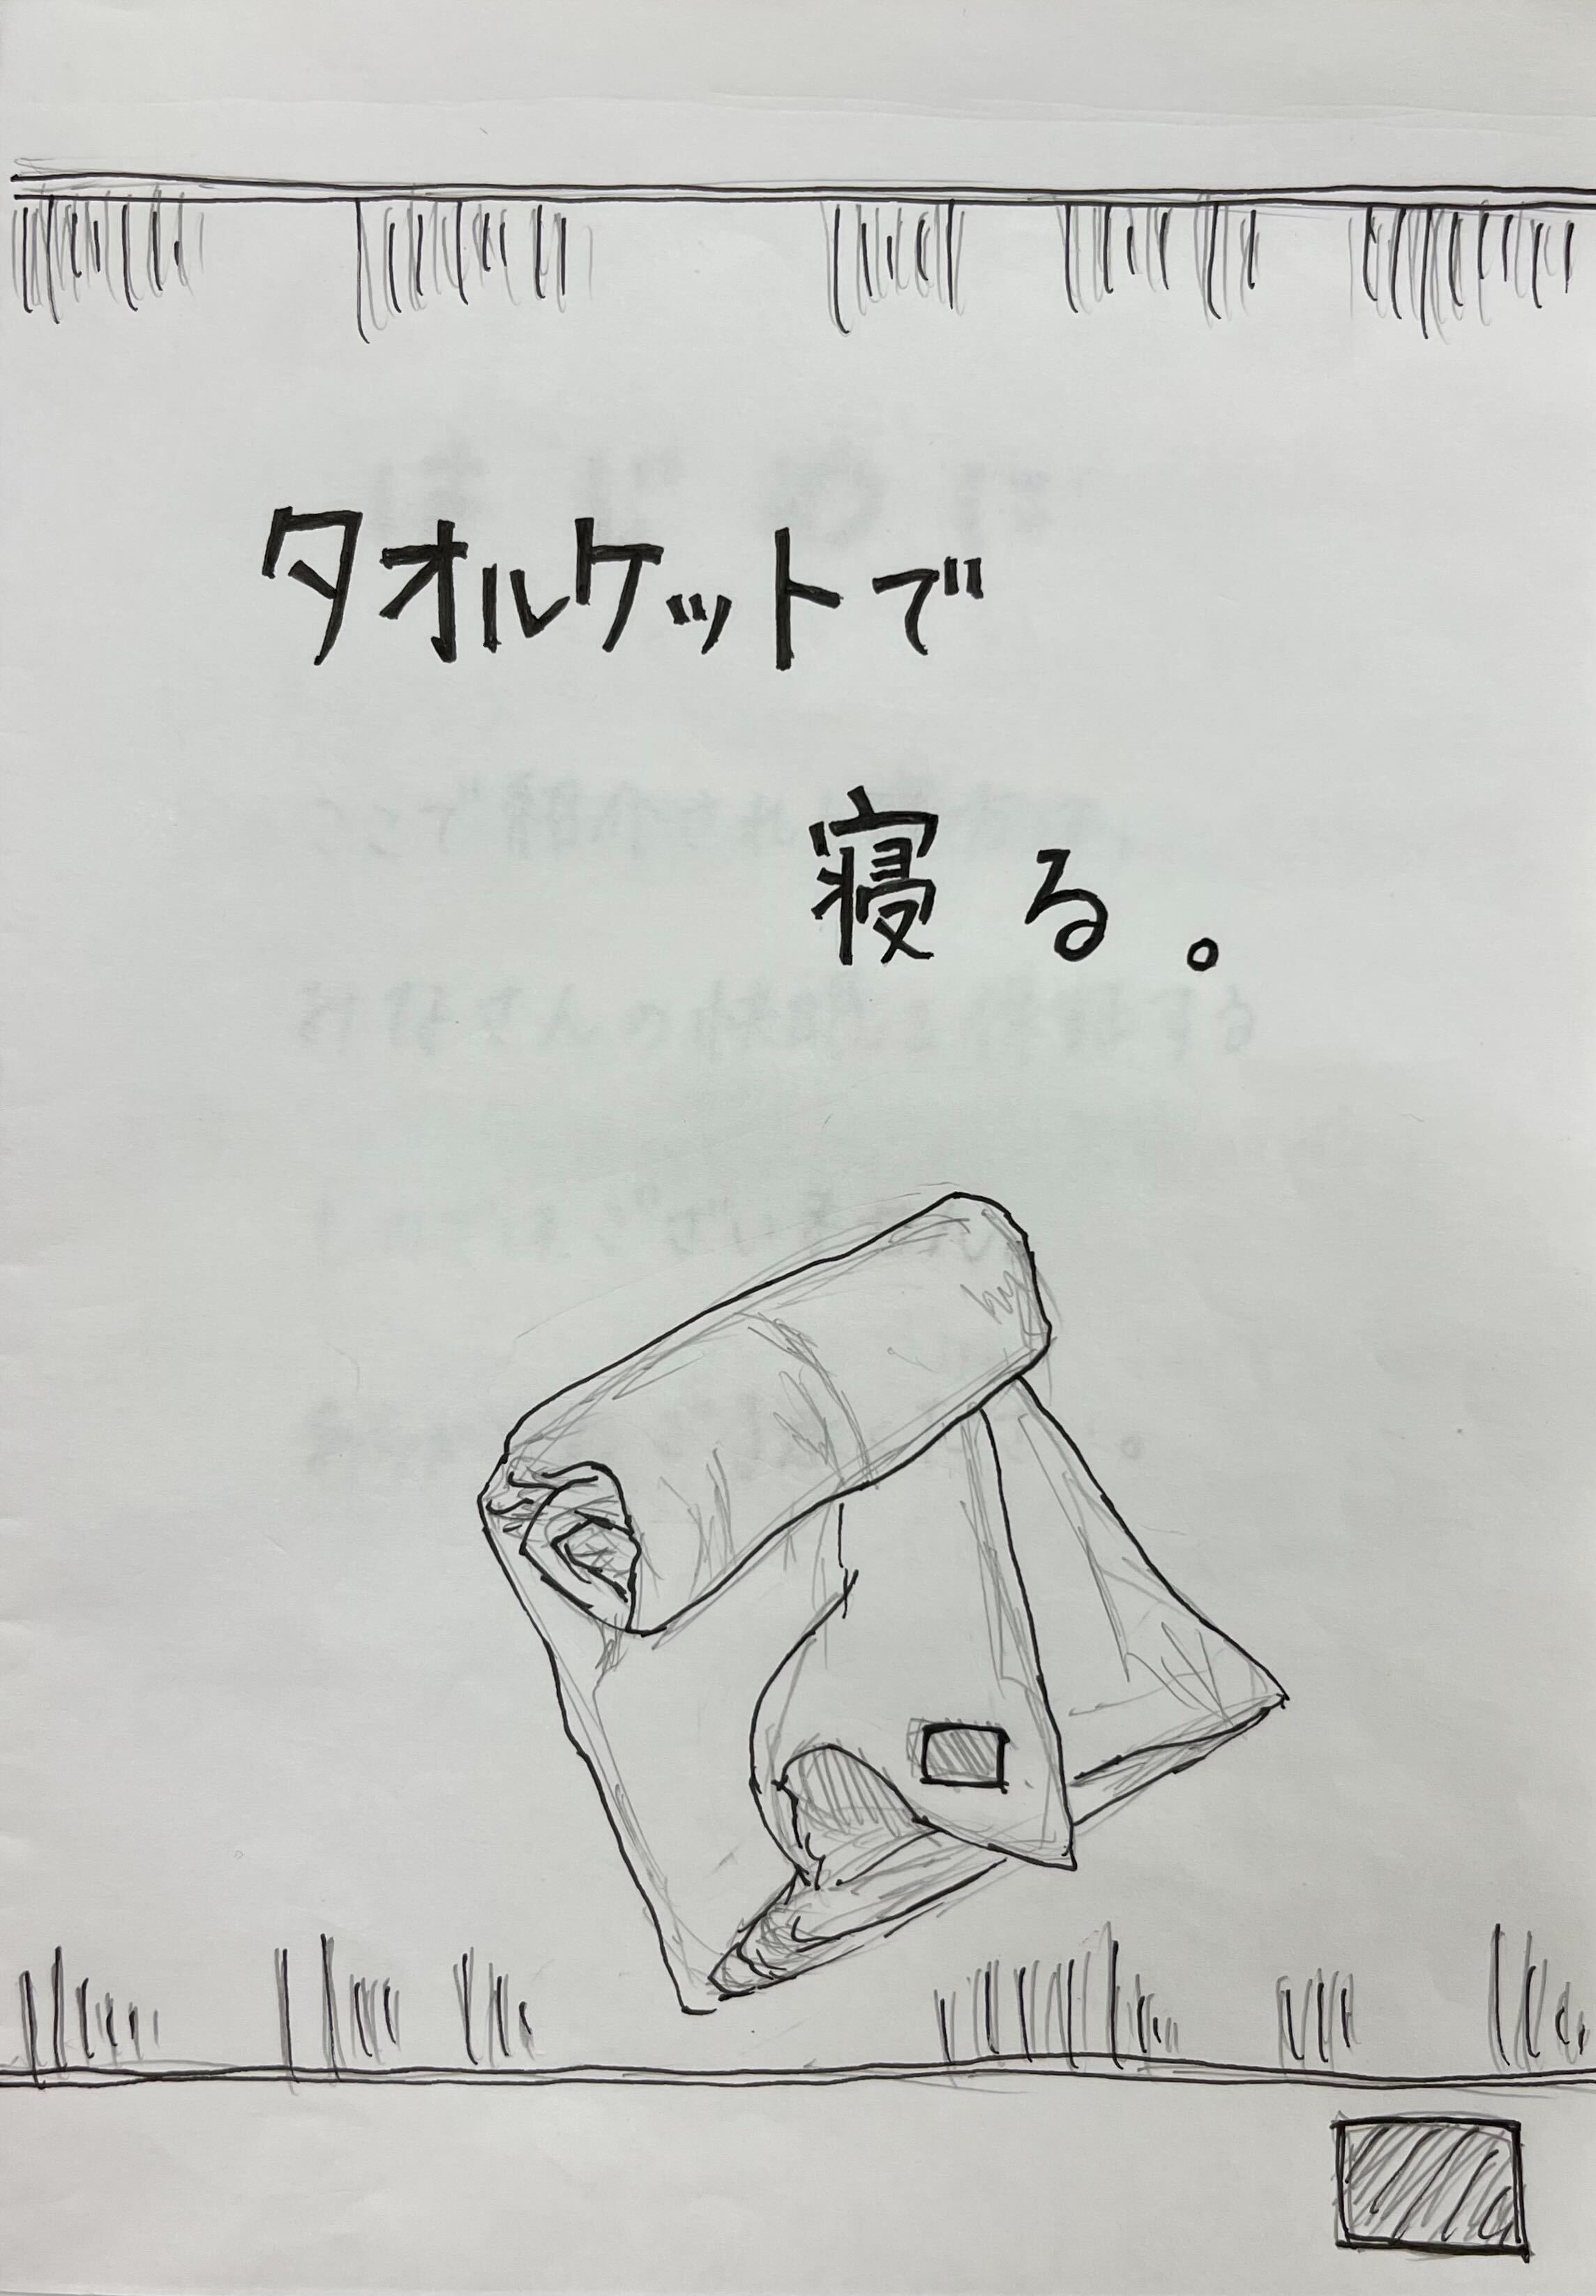 タオルケットで
寝る。